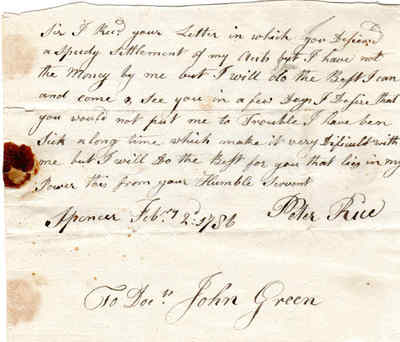 Sir I Recd your Letter in which you Desired
a Speedy Settlement of my but I have not
the Money by me but I will do the Best I can
and come & See you in a few Days I Desire that
you would not put me to Trouble I have ben
Sick a long time which make it very Difficult with
me but I will Do the Best for you that lies in my
Power this from your Humble Servant
Spencer Febry 2d 1786 Peter Rice
To Docr John Green